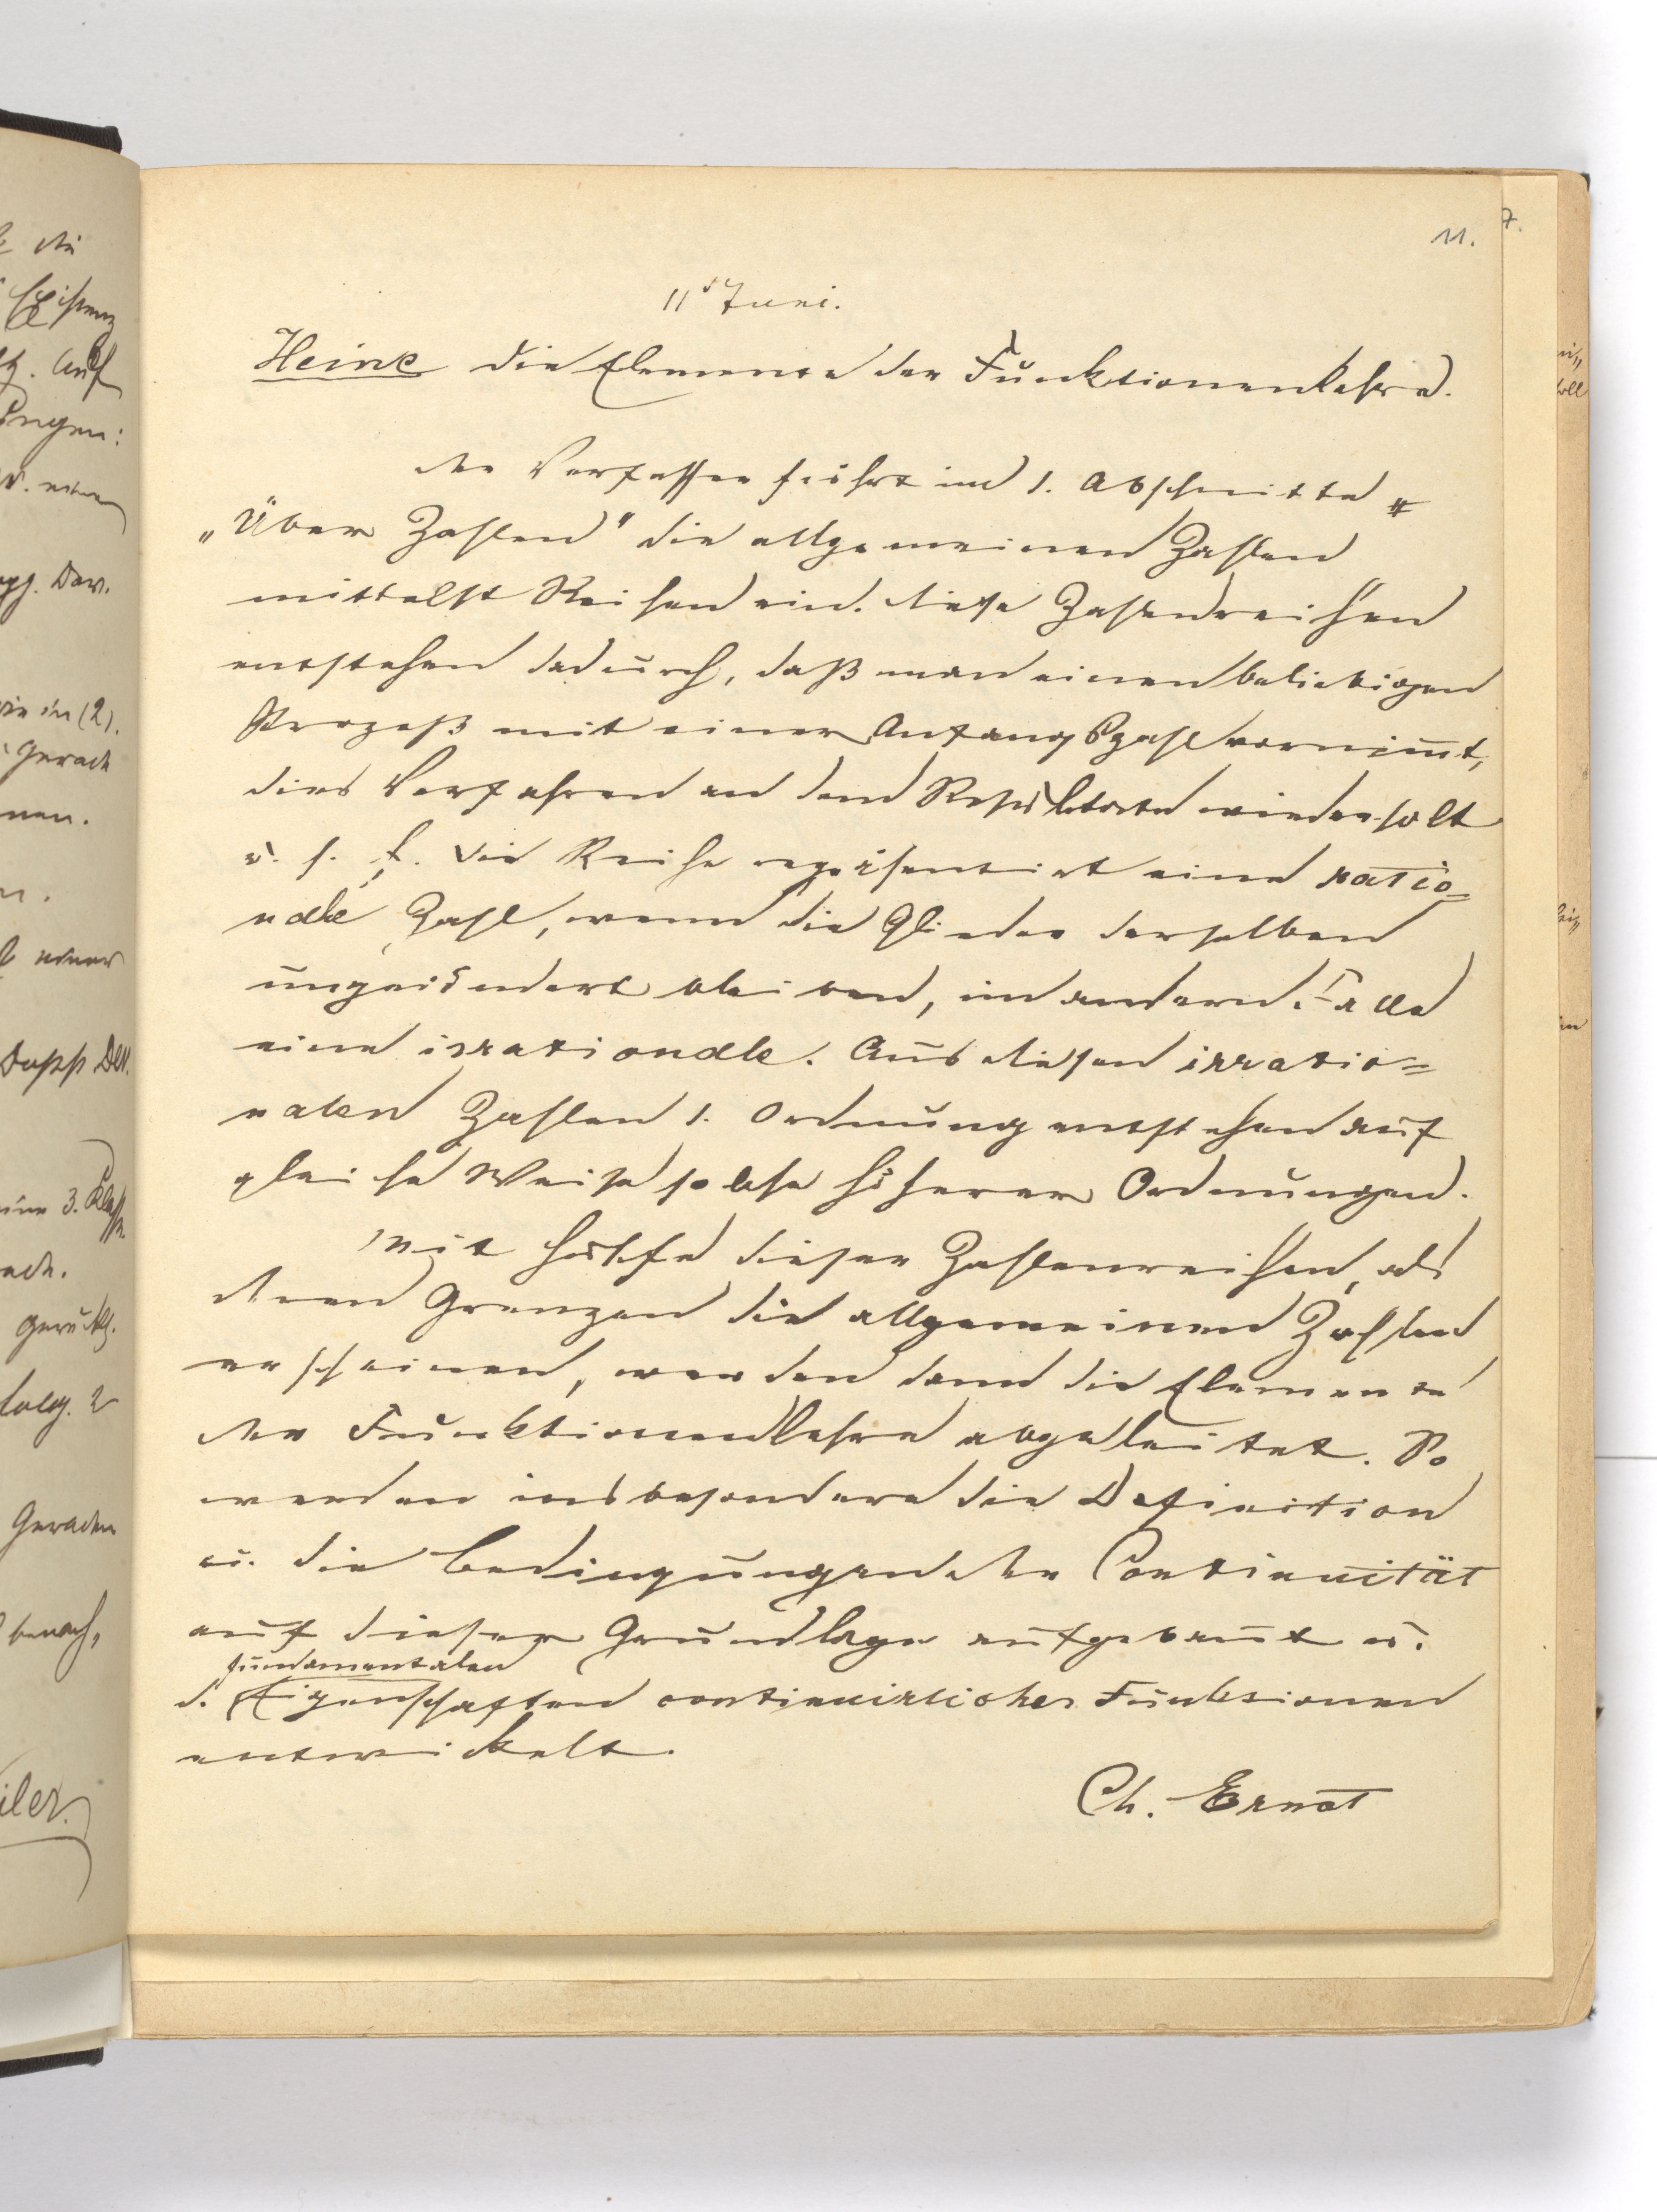 11.
7.
11' Juni.
Heine die Elemente der Funktionenlehre.
der Verfasser führt im 1. Abschnitte
„Über Zahlen" die allgemeinen Zahlen
mittelst Reihen ein. diese Zahlenreihen
entstehen dadurch, daß man einen beliebigen
Prozeß mit einer Anfangszahl vornim̄t,
dies Verfahren an dem Resultate wiederholt
u. s. f. die Reihe repräsentirt eine ratio=
nale Zahl, wenn die Glieder derselben
ungeändert bleiben, im andern Falle
eine irrationale. Aus diesen irratio=
nalen Zahlen 1. Ordnung entstehen auf
gleiche Weise solche höherer Ordnungen.
Mit Hülfe dieser Zahlenreihen, als
deren Grenzen die allgemeinen Zahlen
erscheinen, werden dann die Elemente
der Funktionenlehre abgeleitet. So
werden insbesondere die Definition
u. die Bedingungen der Continuität
auf dieser Grundlage aufgebaut u.
fundamentalen
d. Eigenschaften continuirlicher Funktionen
entwickelt.
Ch. Ernst
die
Existenz
Auf
ungen:
Dar.
wie in (2).
Gerade
nen.
einer
Dopp
eine 3. Klasse
Geraden
iler.